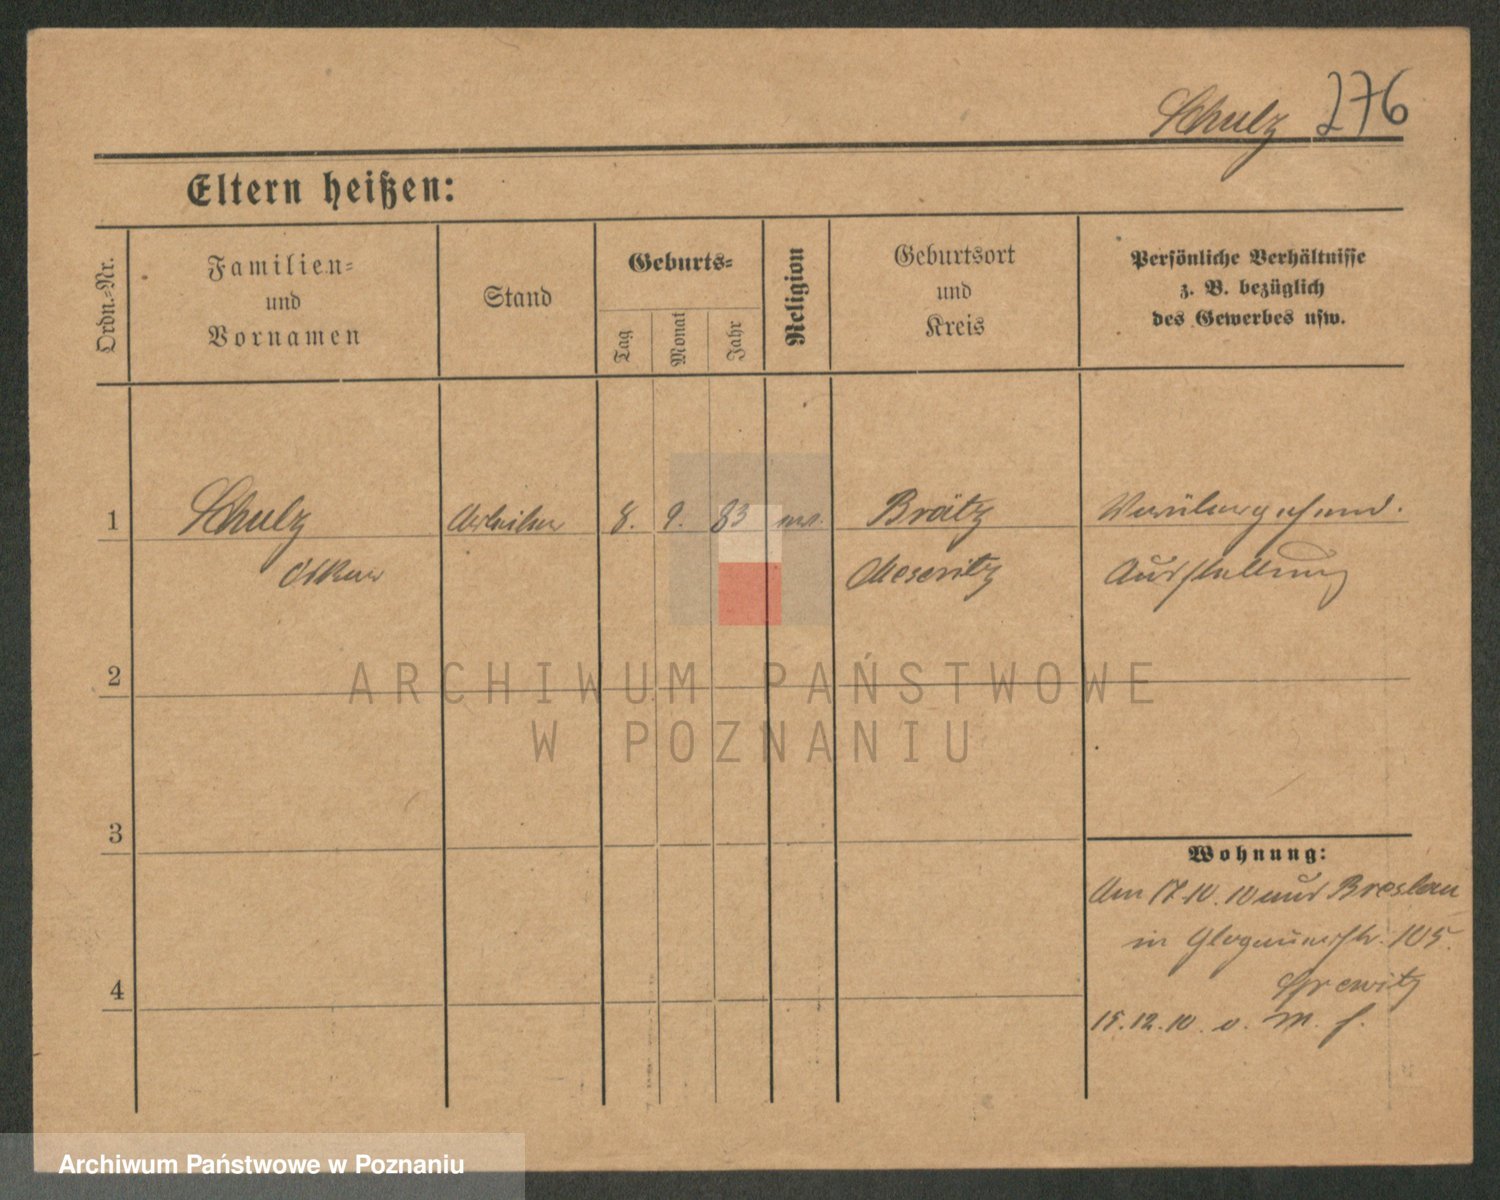 Schulz 276
Eltern heißen:
Ordn.-Nr.
Familien-
und
Vornamen
Stand
Geburts-
Tag
Monat
Jahr
Religion
Geburtsort
und
Kreis
Persönliche Verhältnisse
z. B. bezüglich
des Gewerbes usw.
1 Schulz Arbeiter 8. 9. 83 Brätz Vorübergehend.
Oskar Meseritz Ausstellung
2
ARCHIWUM PAŃSTWOWE
W POZNANIU
3
Wohnung:
Am 17.10.10 aus Breslau
in Glogauerstr. 105.
4
15.12.10. v.
Archiwum Państwowe w Poznaniu